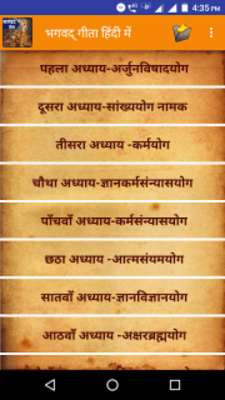 4:35 PM
भगवद् गीता हिंदी में
पहला अध्याय-अर्जुनविषादयोग
दूसरा अध्याय-सांख्ययोग नामक
तीसरा अध्याय -कर्मयोग
चौथा अध्याय-ज्ञानकर्मसंन्यासयोग
पाँचवाँ अध्याय-कर्मसंन्यासयोग
छठा अध्याय -आत्मसंयमयोग
सातवाँ अध्याय-ज्ञानविज्ञानयोग
आठवाँ अध्याय -अक्षरब्रह्मयोग